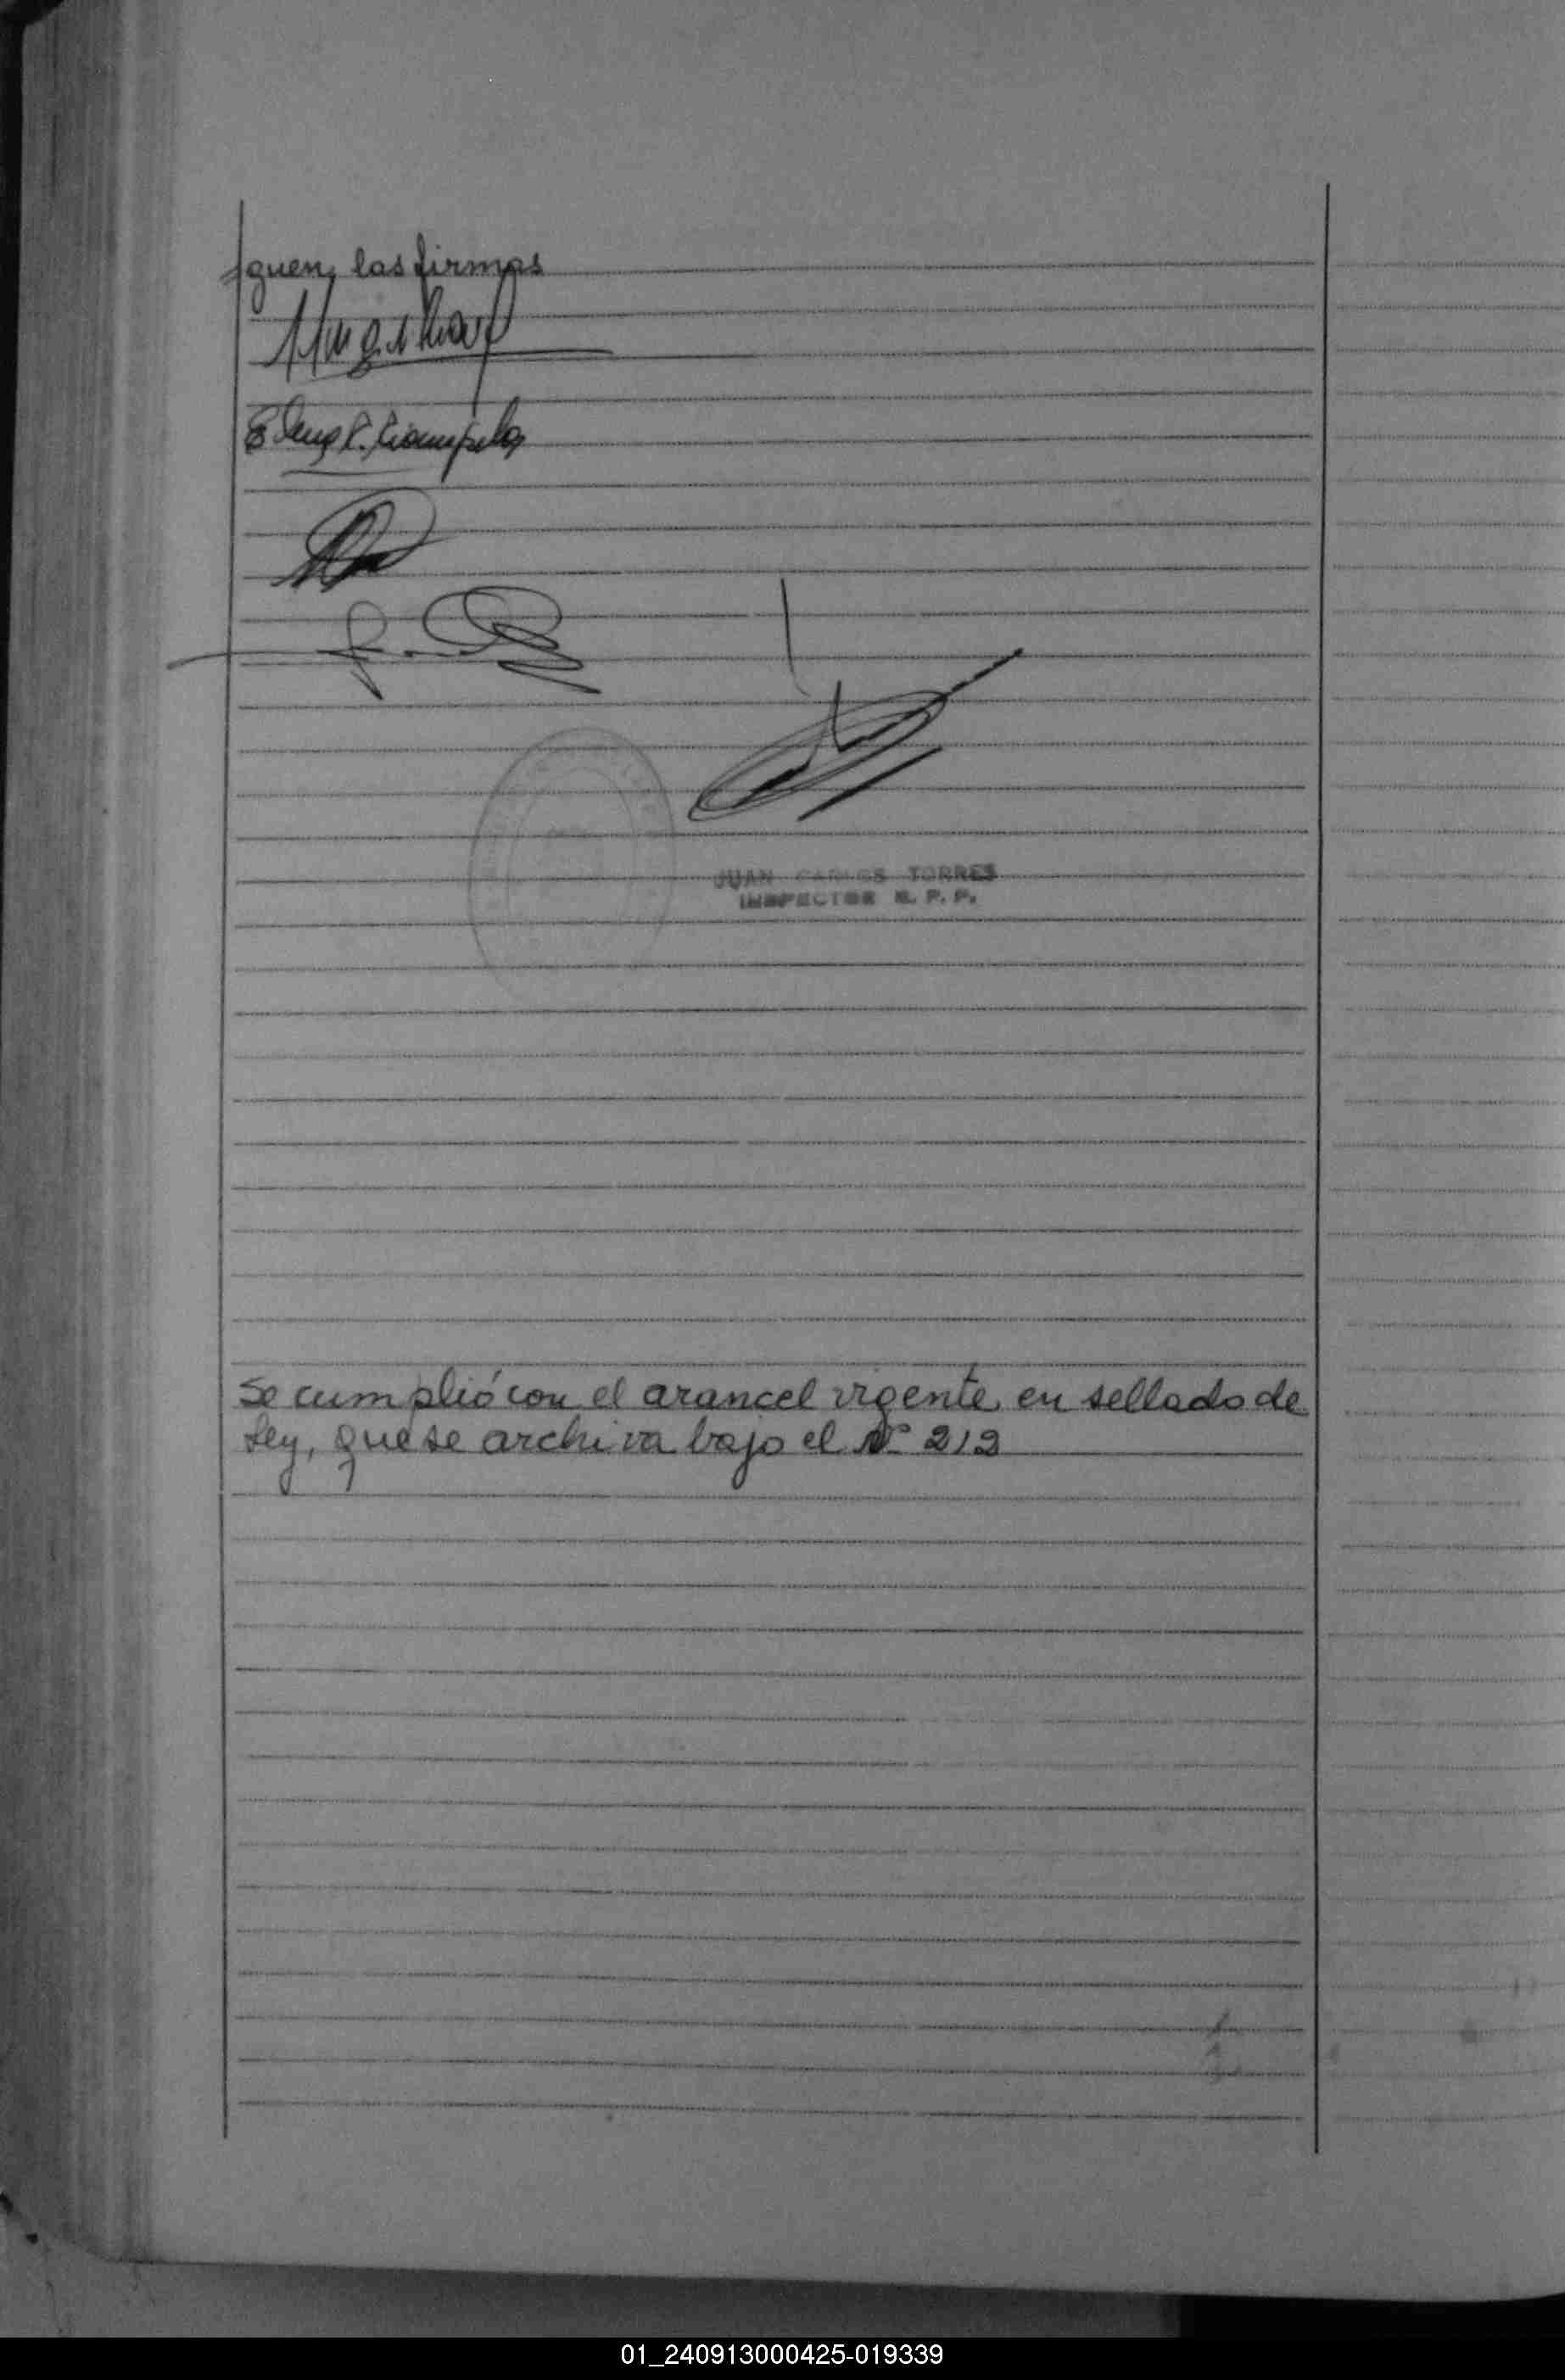 siguen las firmas
Elena P. Ciampela
JUAN CARLOS TORRES
INSPECTOR R. P. P.
Se cumplió con el arancel vigente en sellado de
Ley, que se archiva bajo el Nº 212
01_240913000425-019339